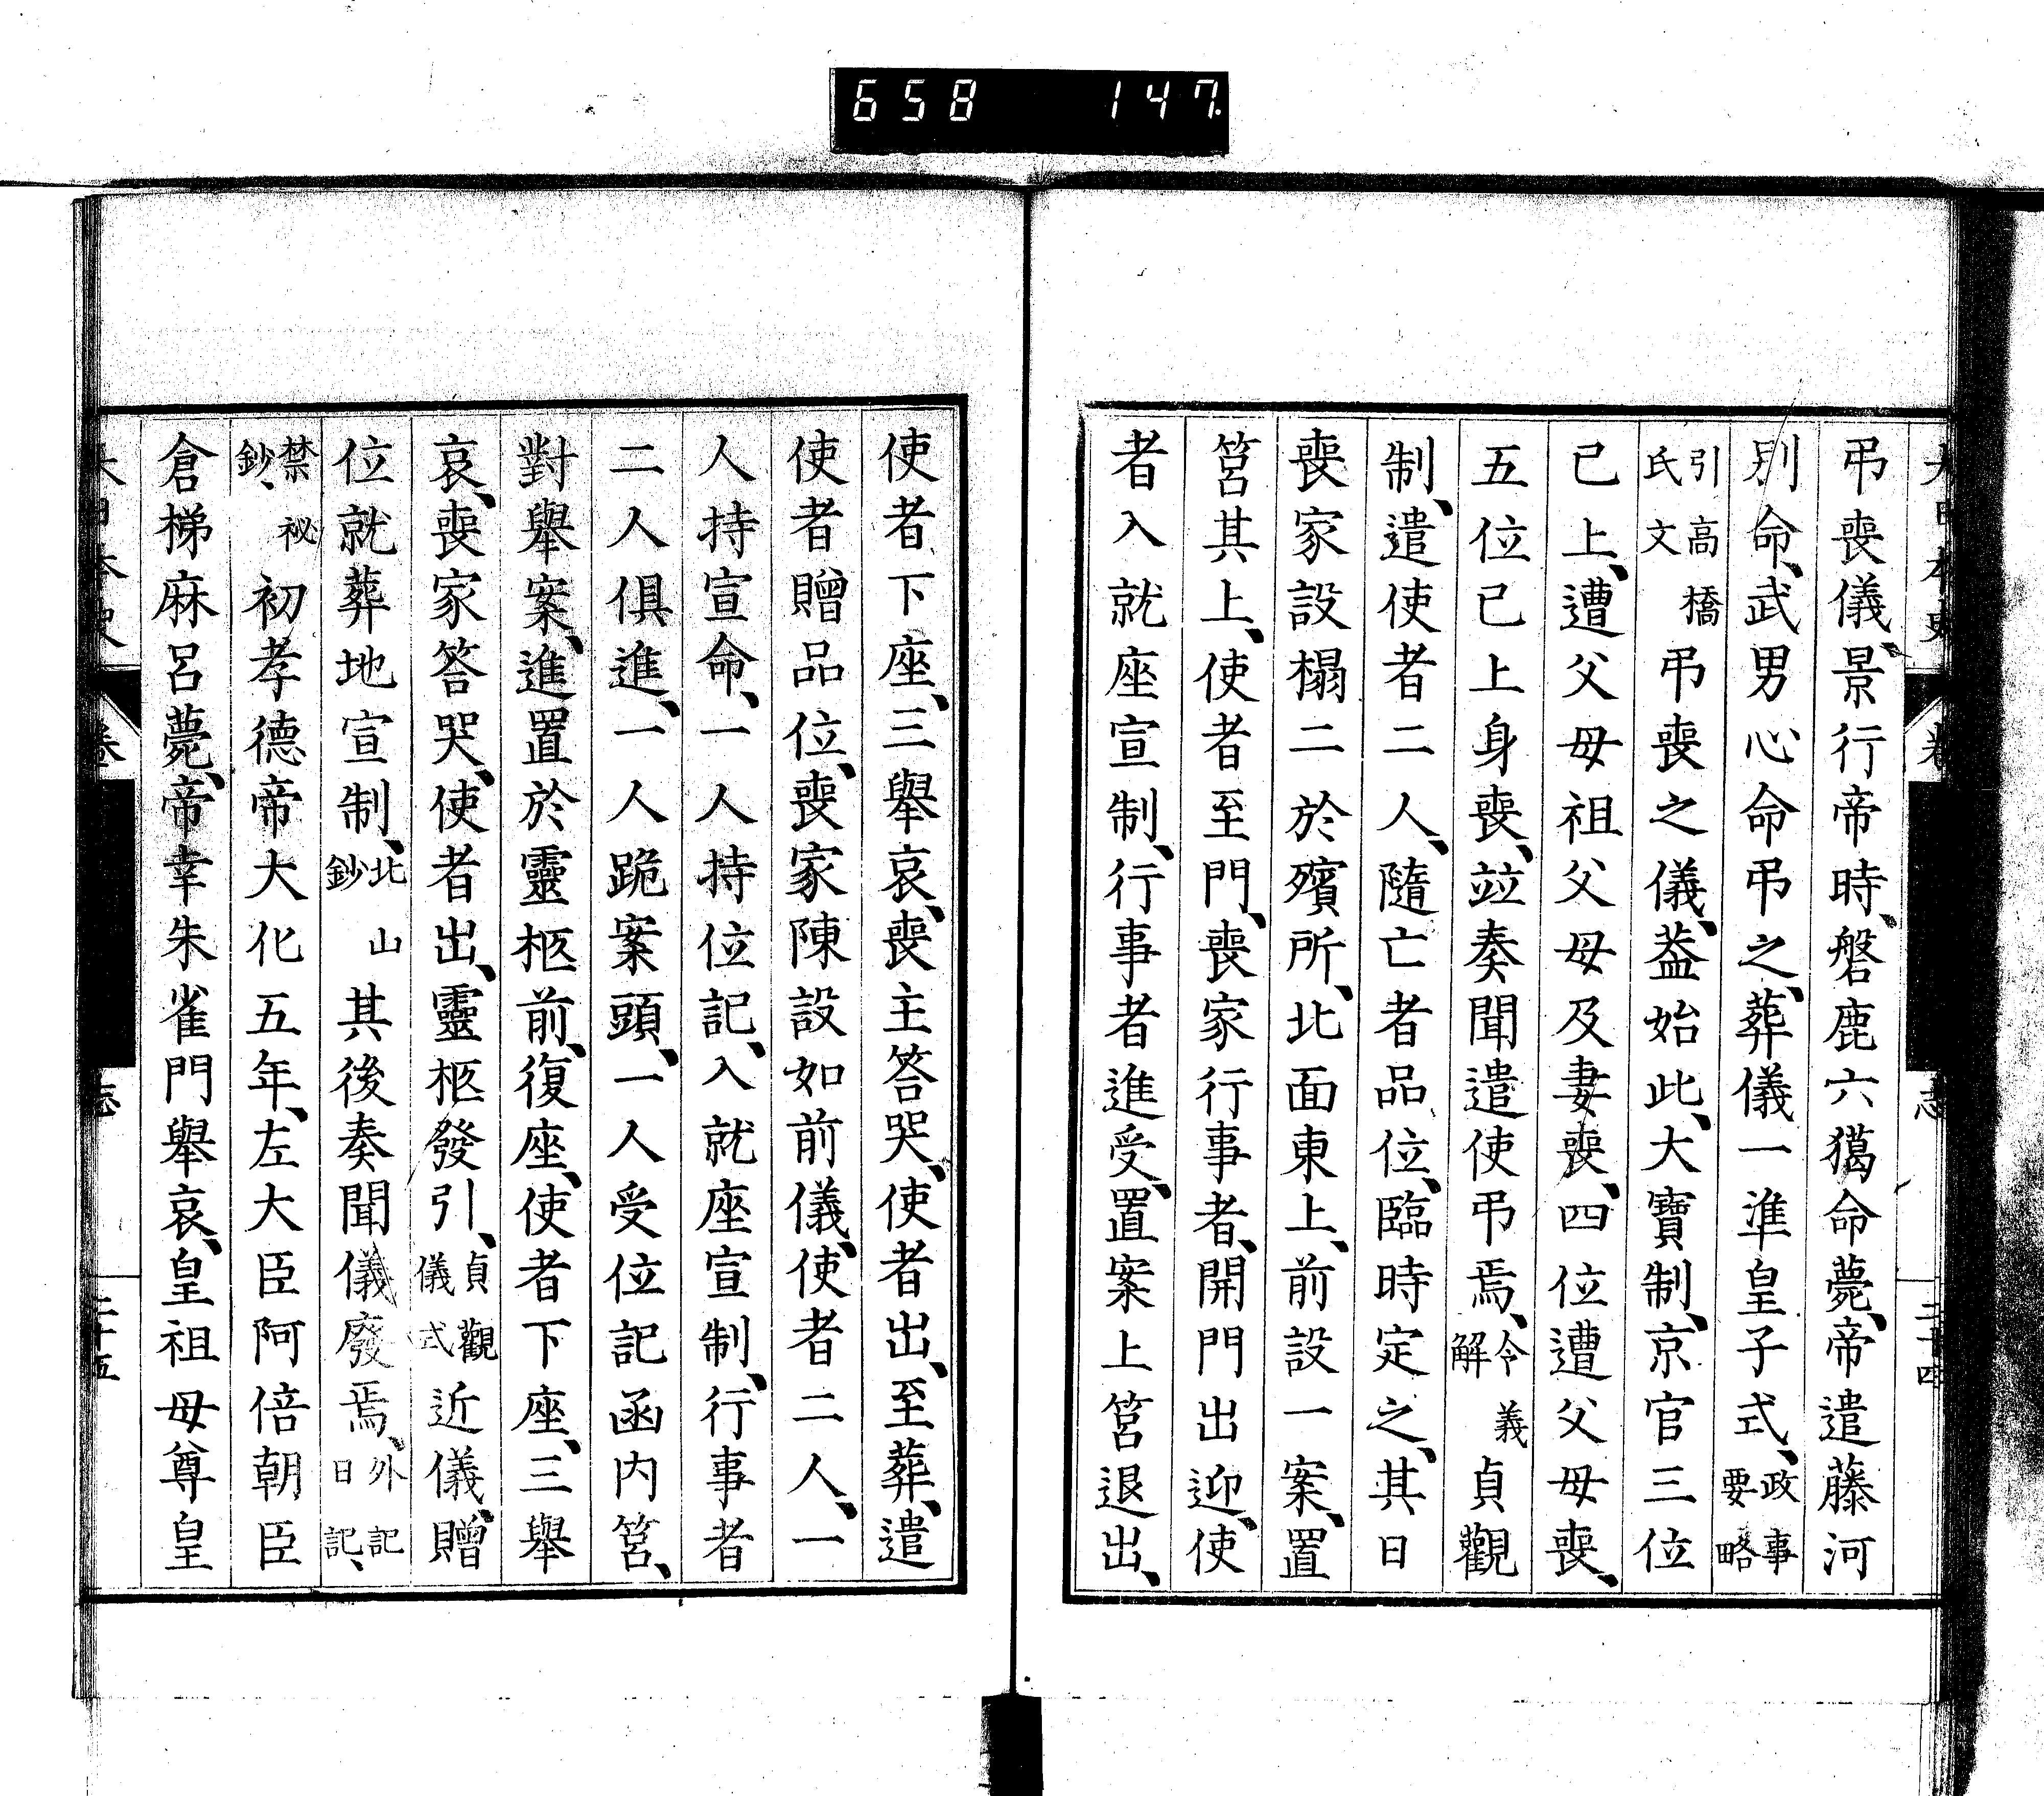 658 147
弔喪儀、景行帝時、磐鹿六獦命薨、帝遣藤河
別命、武男心命弔之、葬儀一準皇子式、政事要略
引高橋氏文 弔喪之儀、葢始此、大寶制、京官三位
已上、遭父母祖父母及妻喪、四位遭父母喪、
五位已上身喪、竝奏聞遣使弔焉、令義解 貞觀
制、遣使者二人、隨亡者品位、臨時定之、其日
喪家設榻二於殯所、北面東上、前設一案、置
筥其上、使者至門、喪家行事者、開門出迎、使
者入就座宣制、行事者進受、置案上筥退出、
使者下座、三舉哀、喪主答哭、使者出、至葬、遣
使者贈品位、喪家陳設如前儀、使者二人、一
人持宣命、一人持位記、入就座宣制、行事者
二人俱進、一人跪案頭、一人受位記函内筥、
對舉案、進置於靈柩前、復座、使者下座、三舉
哀、喪家答哭、使者出、靈柩發引、貞觀儀式 近儀、贈
位就葬地宣制、北山鈔 其後奏聞儀廢焉、外記日記、
禁秘鈔、 初孝德帝大化五年、左大臣阿倍朝臣
倉梯麻呂薨、帝幸朱雀門舉哀、皇祖母尊皇
大日本史 卷 志 二十五